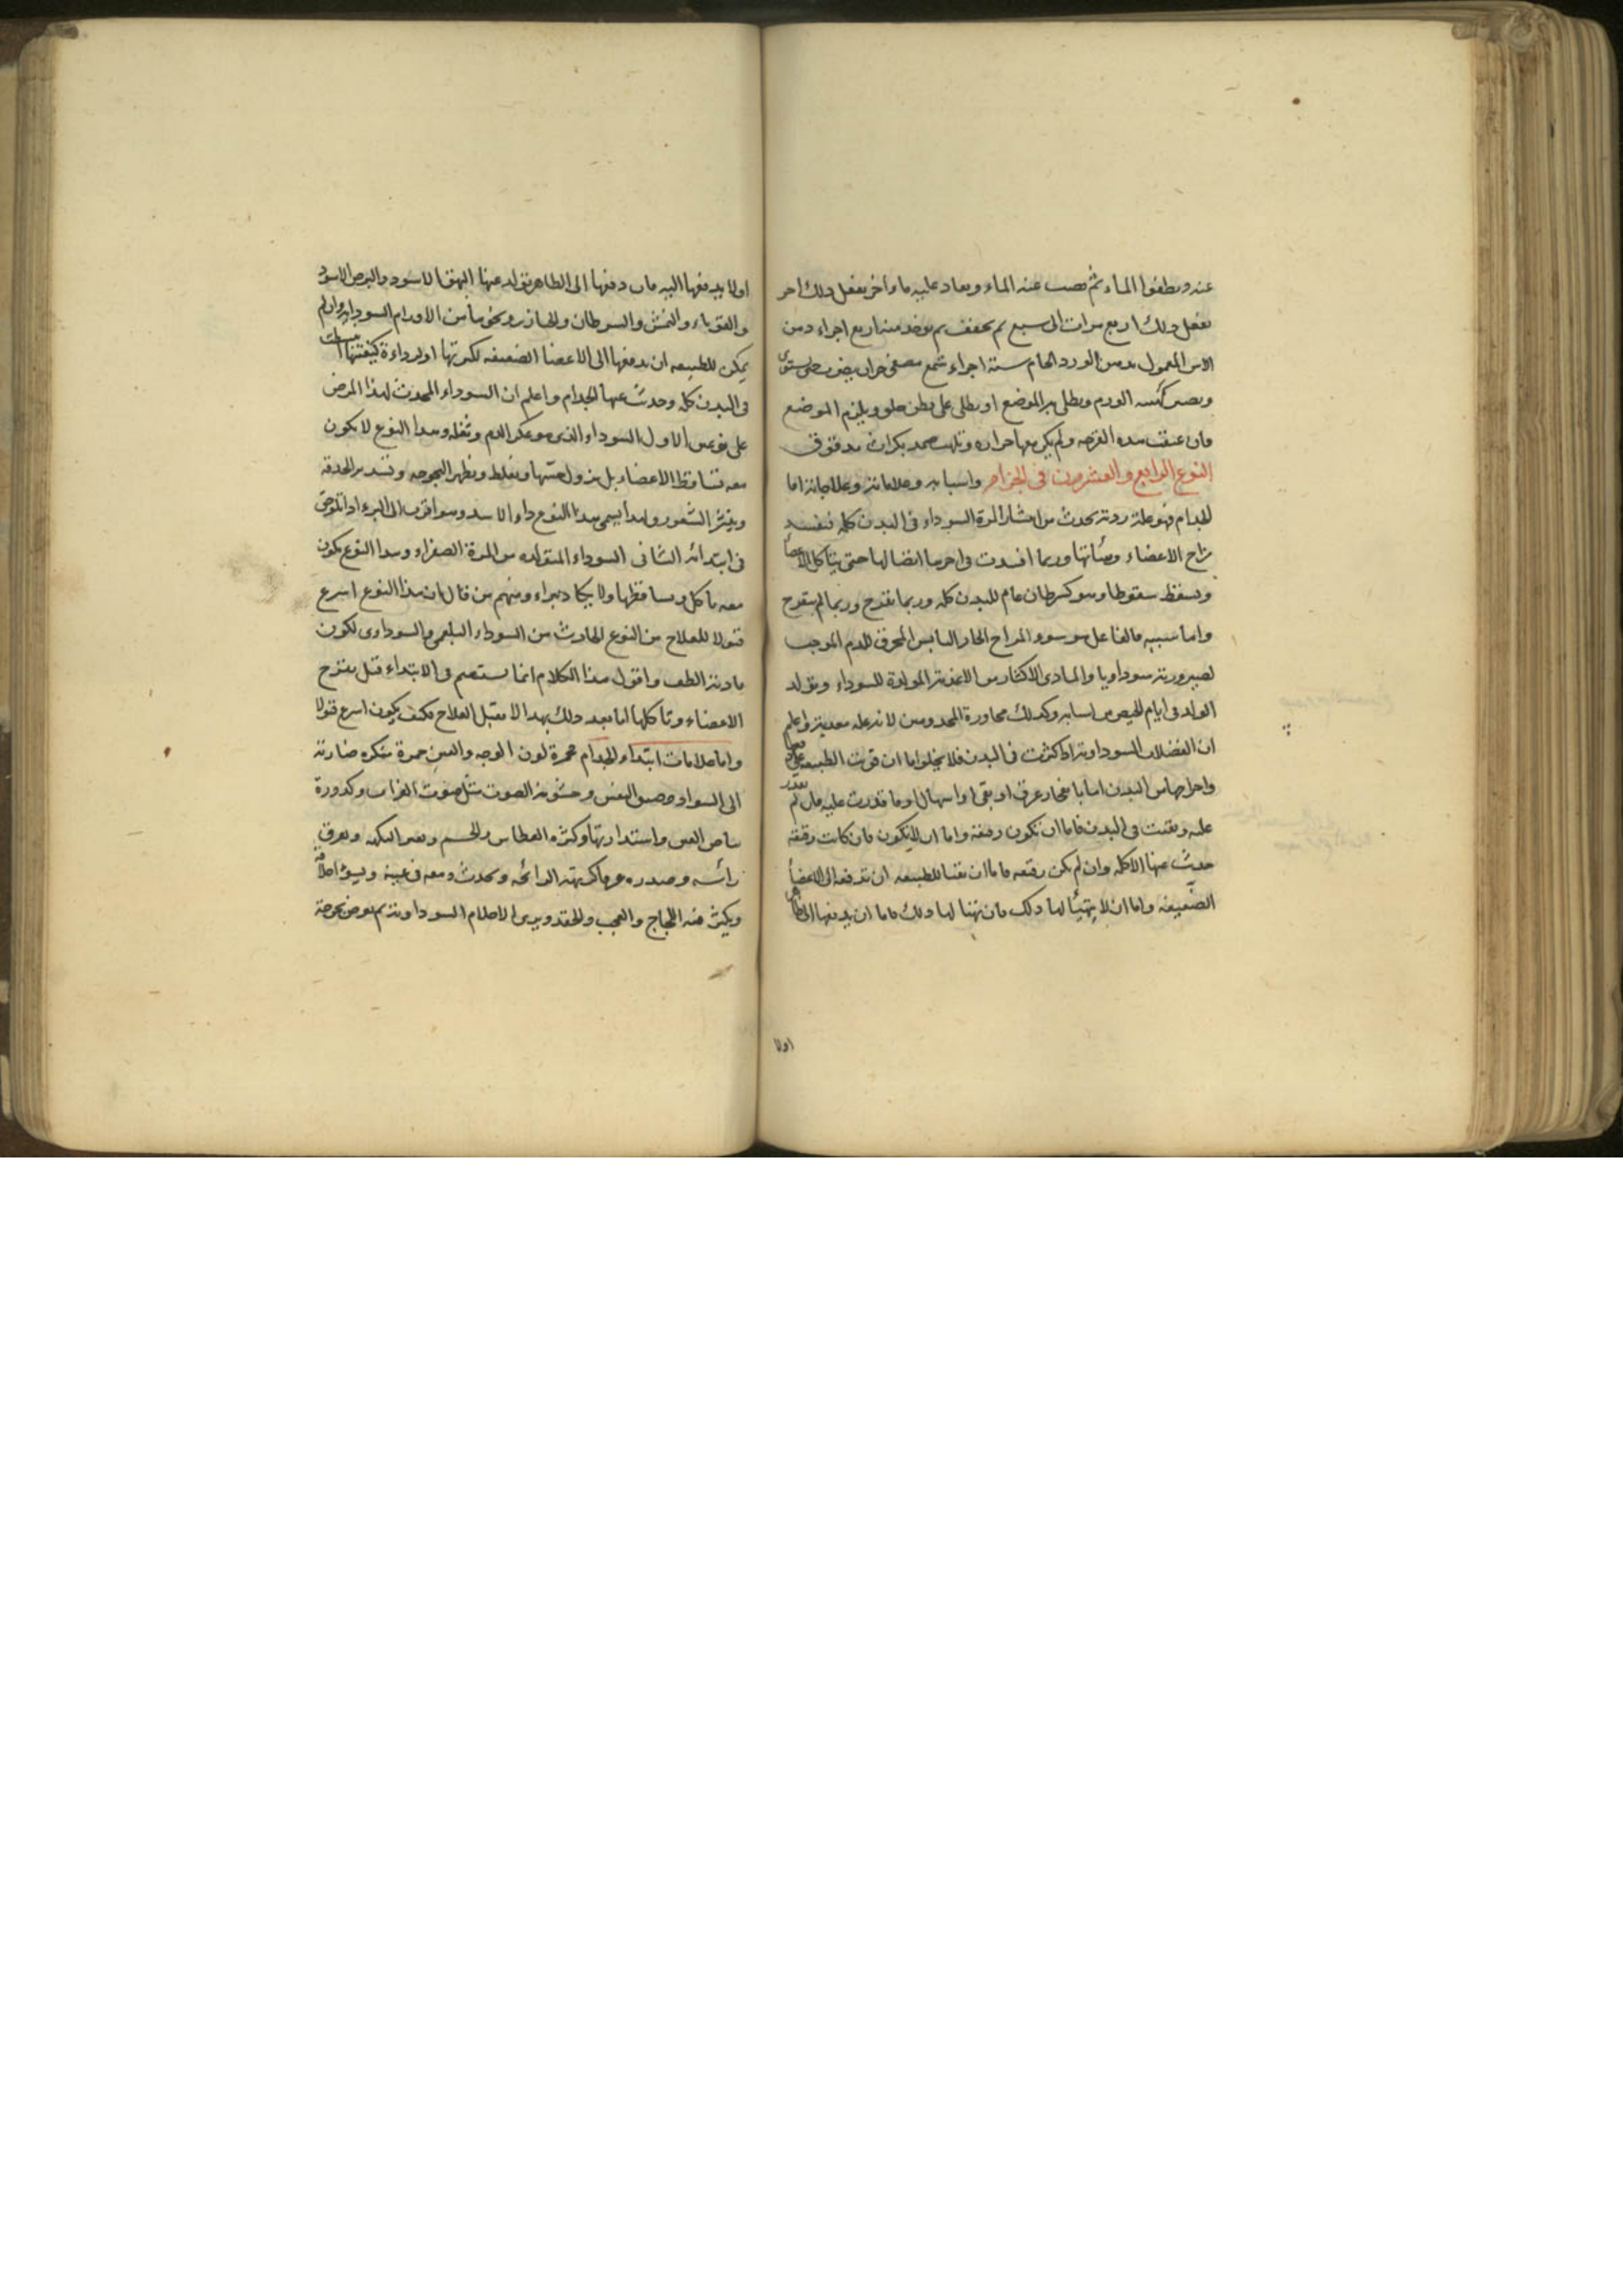 عنه ويطفوا الماء ثم يصب عنه الماء ويعاد عليه ماء اخر يفعل ذلك اخر
يفعل ذلك اربع مرات الى سبع ثم يجفف ثم يوخذ منه اربع اجزاء دهن
الاس المعمول بدهن الورد الخام ستة اجزاء شمع مصفى جزان يضرب حتى يستوى
الورم ويطلى به الموضع او يطلى على قطن خلق ويلزم الموضع
فان عتقت هذه القرحه ولم يكن معها حراره وتلهب ضمد بكراث مدقوق
النوع الرابع والعشرون فى الجذام واسبابه وعلاماته وعلاجاته اما
الجذام فهو علة ردية تحدث من انتشار المرة السوداء فى البدن كله فيفسد
مزاج الاعضاء وهيأتها وربما افسدت فى اخرها اتصالها حتى يتأكل الاعضأ
ويسقط سقوطا وهو كسرطان عام للبدن كله وربما تقرح وربما لم يتقرح
واما سببه فالفاعل هو سوء المزاج الحار اليابس المحرق للدم الموجب
لصيرورته سوداويا والمادى الاكثار من الاغذية المولدة للسوداء وتولد
الولد فى ايام الحيض من اسبابه وكذلك مجاورة المجذومين لانه عله معدية واعلم
ان الفضلات السوداوية اذا كثرت فى البدن فلا يخلوا اما ان قويت الطبيعة على دفعها
واخراجها من البدن اما بانفجار عرق او بقئ او اسهال او ما قدرت عليه فان لم تقدر
عليه وبقيت فى البدن فاما ان تكون رقيقة واما ان لا يكون فان كانت رقيقة
حدث عنها الاكله وان لم يكن رقيقه فاما ان تهيأ للطبيعه ان تدفعها الى الاعضأ
الضعيفة واما ان لا يتهيأ لها ذلك فان تهيأ لها ذلك فاما ان يدفعها الى الظاهر
اولا
اولا يدفعها اليه فان دفعها الى الظاهر تولد عنها البهق الاسود والبرص الاسود
والقوباء والنمش والسرطان والخنازير ونحوها من الاورام السوداوية وان لم
يمكن للطبيعه ان يدفعها الى الاعضا الضعيفه لكثرتها او لرداءة كيفيتها انبسطت
فى البدن كله وحدث عنها الجذام واعلم ان السوداء المحدث لهذا المرض
على نوعين الاول السوداء الذى هو عكر الدم وثفله وهذا النوع لا يكون
معه تساقط الاعضاء بل يزول حسها ويغلظ ويظهر البحوحه وتستدير الحدقه
وينثر الشعور ولهذا يسمى هذا النوع داء الاسد وهو اقرب الى البرء اذا تلوحق
فى ابتدائه الثانى السوداء المتولده من المرة الصفراء وهذا النوع يكون
معه تاكل وتساقط ولا يكاد يبراء ومنهم من قال ان هذا النوع اسرع
قبولا للعلاج من النوع الحادث من السوداء البلغمى والسوداوى لكون
مادته الطف واقول هذا الكلام انما يستقيم فى الابتداء قبل تقرح
الاعضاء وتاكلها اما بعد ذلك بهذا لا يقبل العلاج فكيف يكون اسرع قبولا
واما علامات ابتداء الجذام حمرة لون الوجه والعين حمرة منكره ضاربة
الى السواد وضيق النفس وخشونة الصوت مثل صوت الغراب وكدورة
بياض العين واستدارتها وكثره العطاس والخشم ونتن النكهه وعرق
راسه وصدره عرقا كريه الرائحه وتحدث دمعه فى عينه ويسؤ اخلاقه
ويكثر فيه اللجاج والعجب والحقد ويرى الاحلام السوداوية ثم يعرض بحوحة